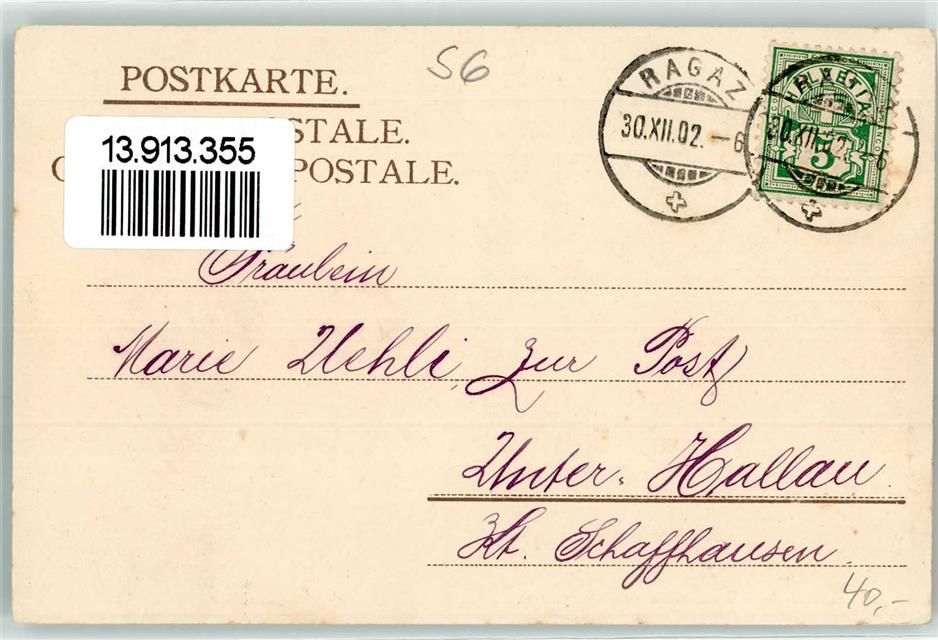 56
POSTKARTE.
STALE.
POSTALE.
13.913.355
RAGAZ
30.XII.02. –6
HELVETIA
30.XII.02. –6
5
Fräulein
Marie Uehli, zur Post
Unter-Hallau.
Kt. Schaffhausen.
40,-